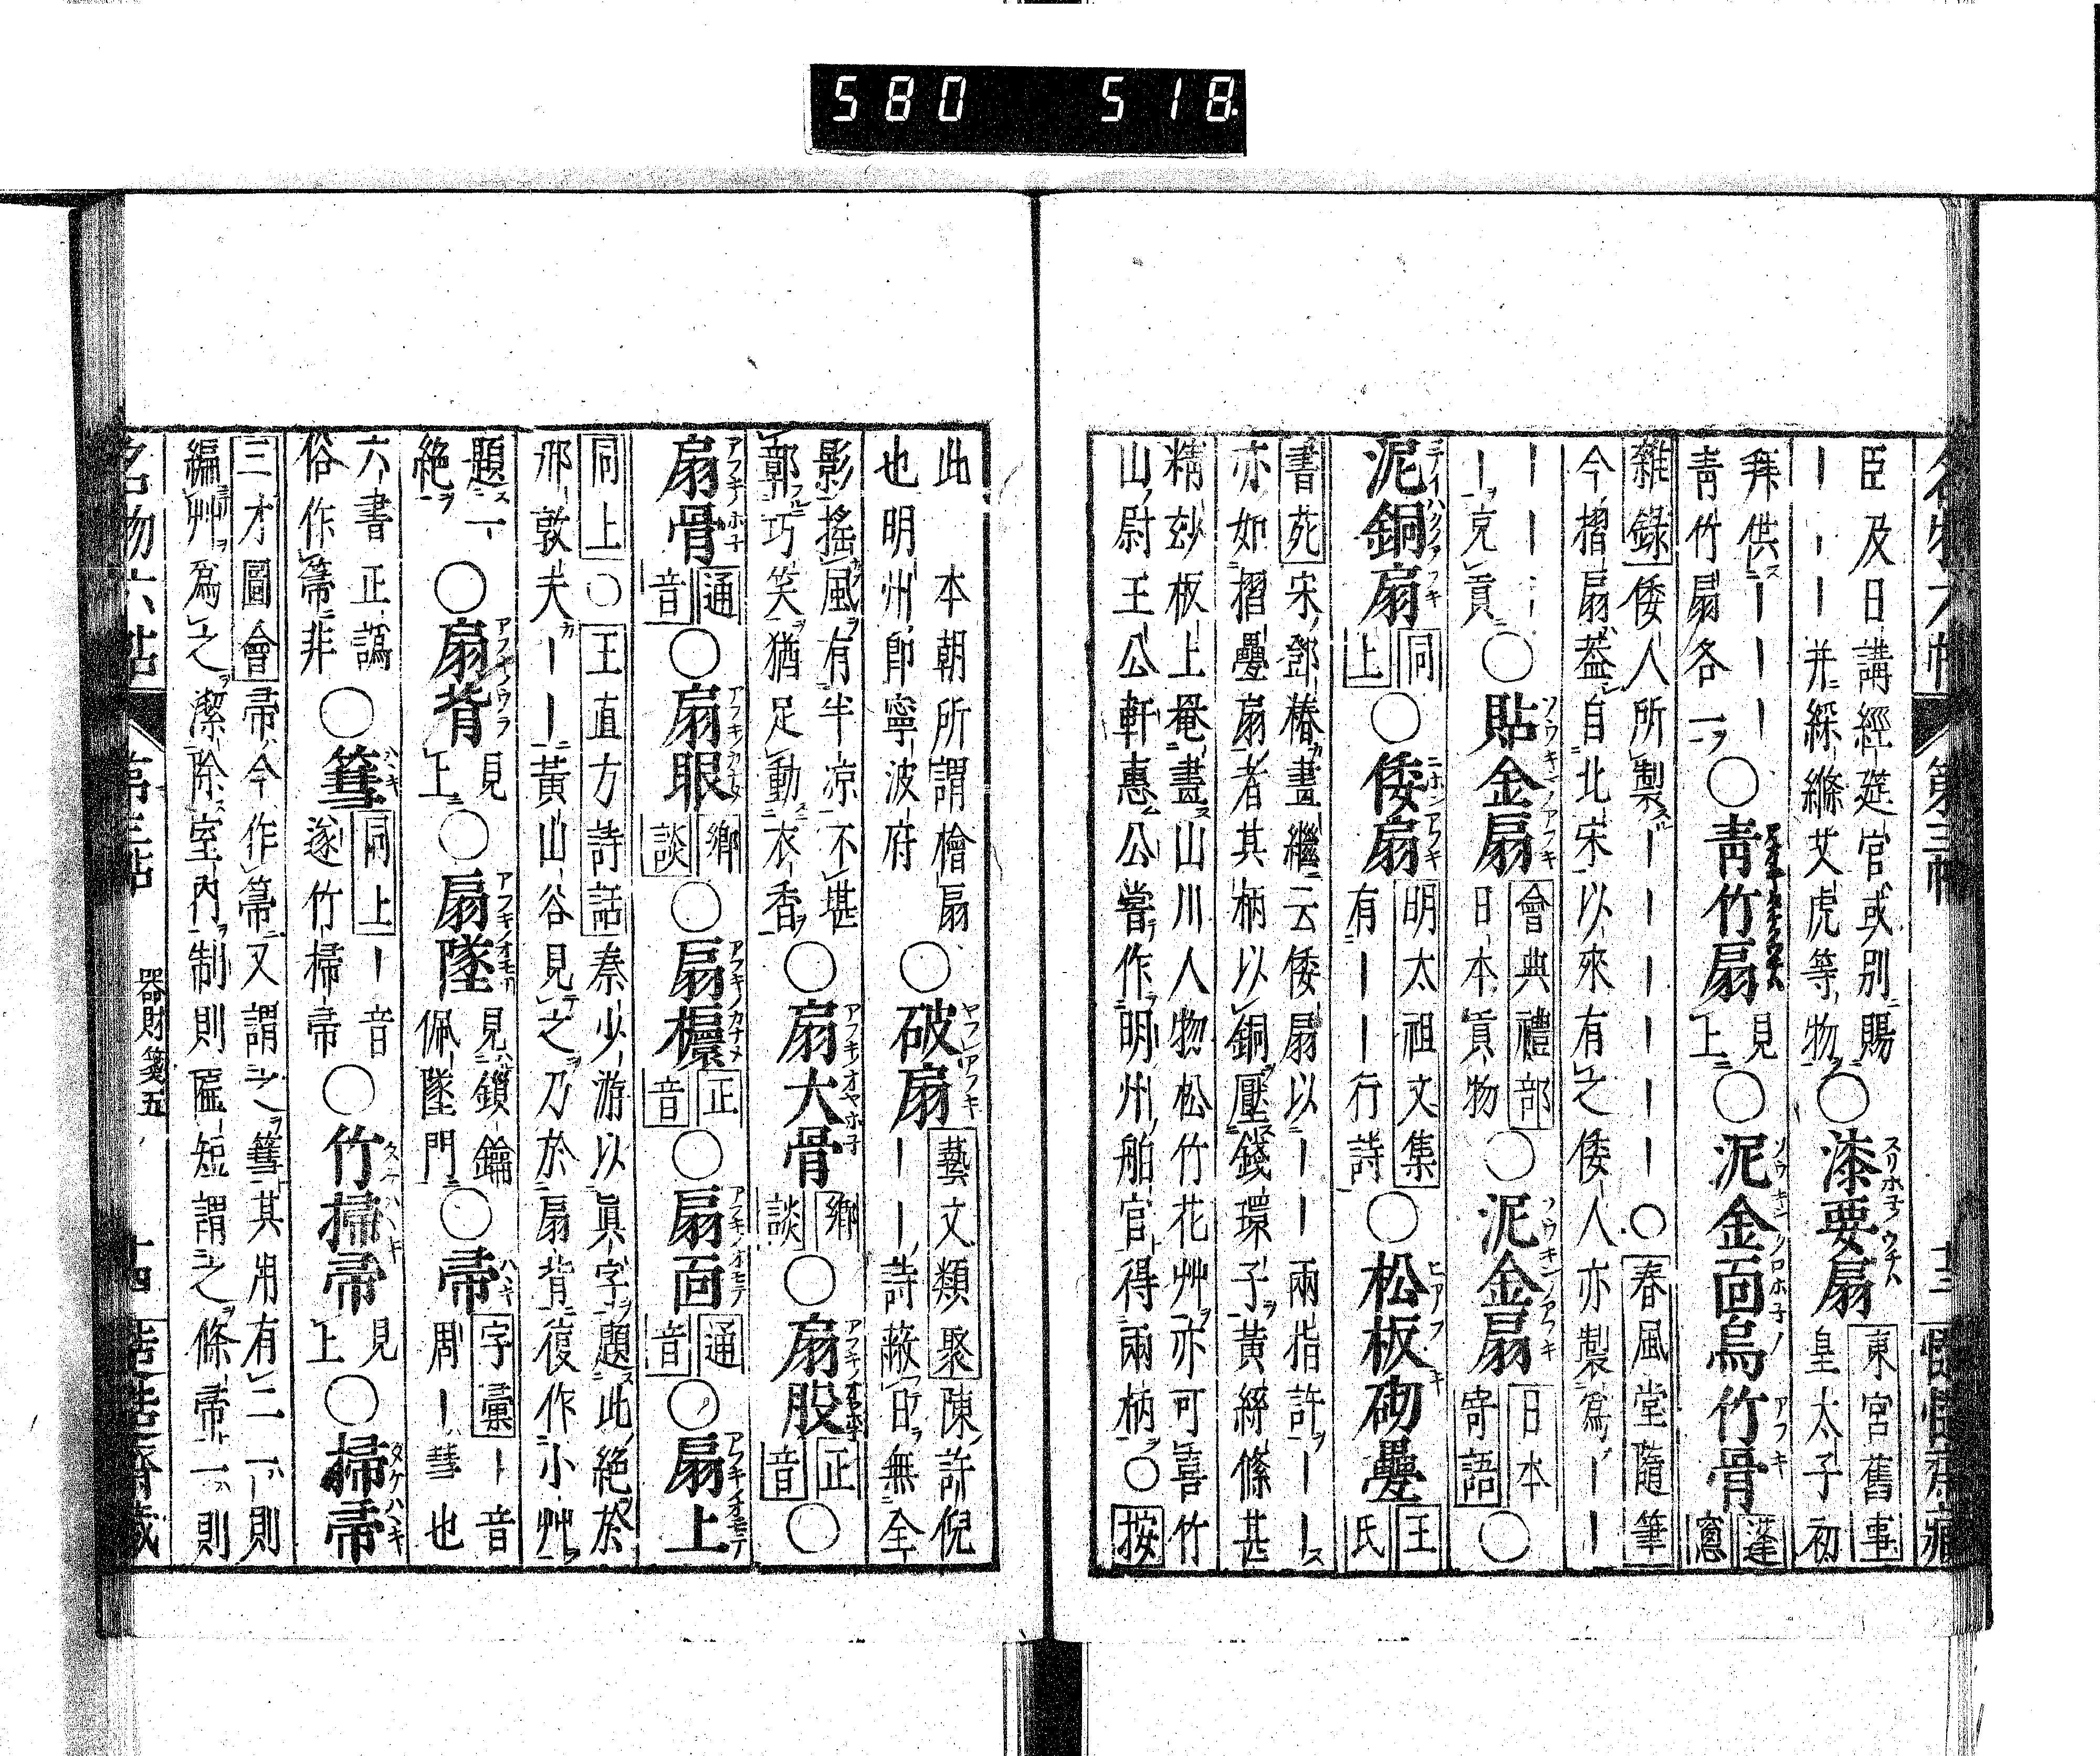 580 518
名物六帖 第三帖 十三
臣及日講經筵官或別賜
ーーー并綵縧艾虎等物○漆要扇 東宮舊事
皇太子初
拜供ーーー
青竹扇各一○青竹扇 見上○泥金面烏竹骨 蓬窻
雜錄 倭人所製ーーーーー○春風堂隨筆
今摺扇蓋自北宋以來有之倭人亦製爲ーー
ーーー
ー充貢○貼金扇 會典禮部
日本貢物○泥金扇 日本
寄語○
泥銅扇 同上○倭扇 明太祖文集
有ーーー行詩○松板砌疊 王氏
書苑 宋鄧椿畫繼云倭扇以ーー兩指許ーー
亦如摺疊扇者其柄以銅壓錢環子黃絲絛甚
精玅板上罨畫山川人物松竹花艸亦可喜竹
山尉王公軒惠公嘗作明州舶官得兩柄○按
此本朝所謂檜扇
也明州卽寧波府○破扇 藝文類聚 陳許倪
ーー詩蔽日無全
影搖風有半凉不堪
鄣巧笑猶足動衣香○扇大骨 鄉談○扇股 正音○
扇骨 通音○扇眼 鄉談○扇櫦 正音○扇面 通音○扇上
同上○王直方詩話 秦少游以眞字題此絶於
邢敦夫ーー黃山谷見之乃於扇背復作小艸
題一
絶○扇背 見上○扇墜 見鎖鑰
佩墜門○帚 字彙 ー音
周ー彗也
六書正譌
俗作箒非○篲 同上 ー音
遂竹掃帚○竹掃帚 見上○掃帚
三才圖會 帚今作箒又謂之篲其用有二一則
編艸爲之潔除室內制則匾短謂之條帚一則
名物六帖 第三帖 器財箋五 十四